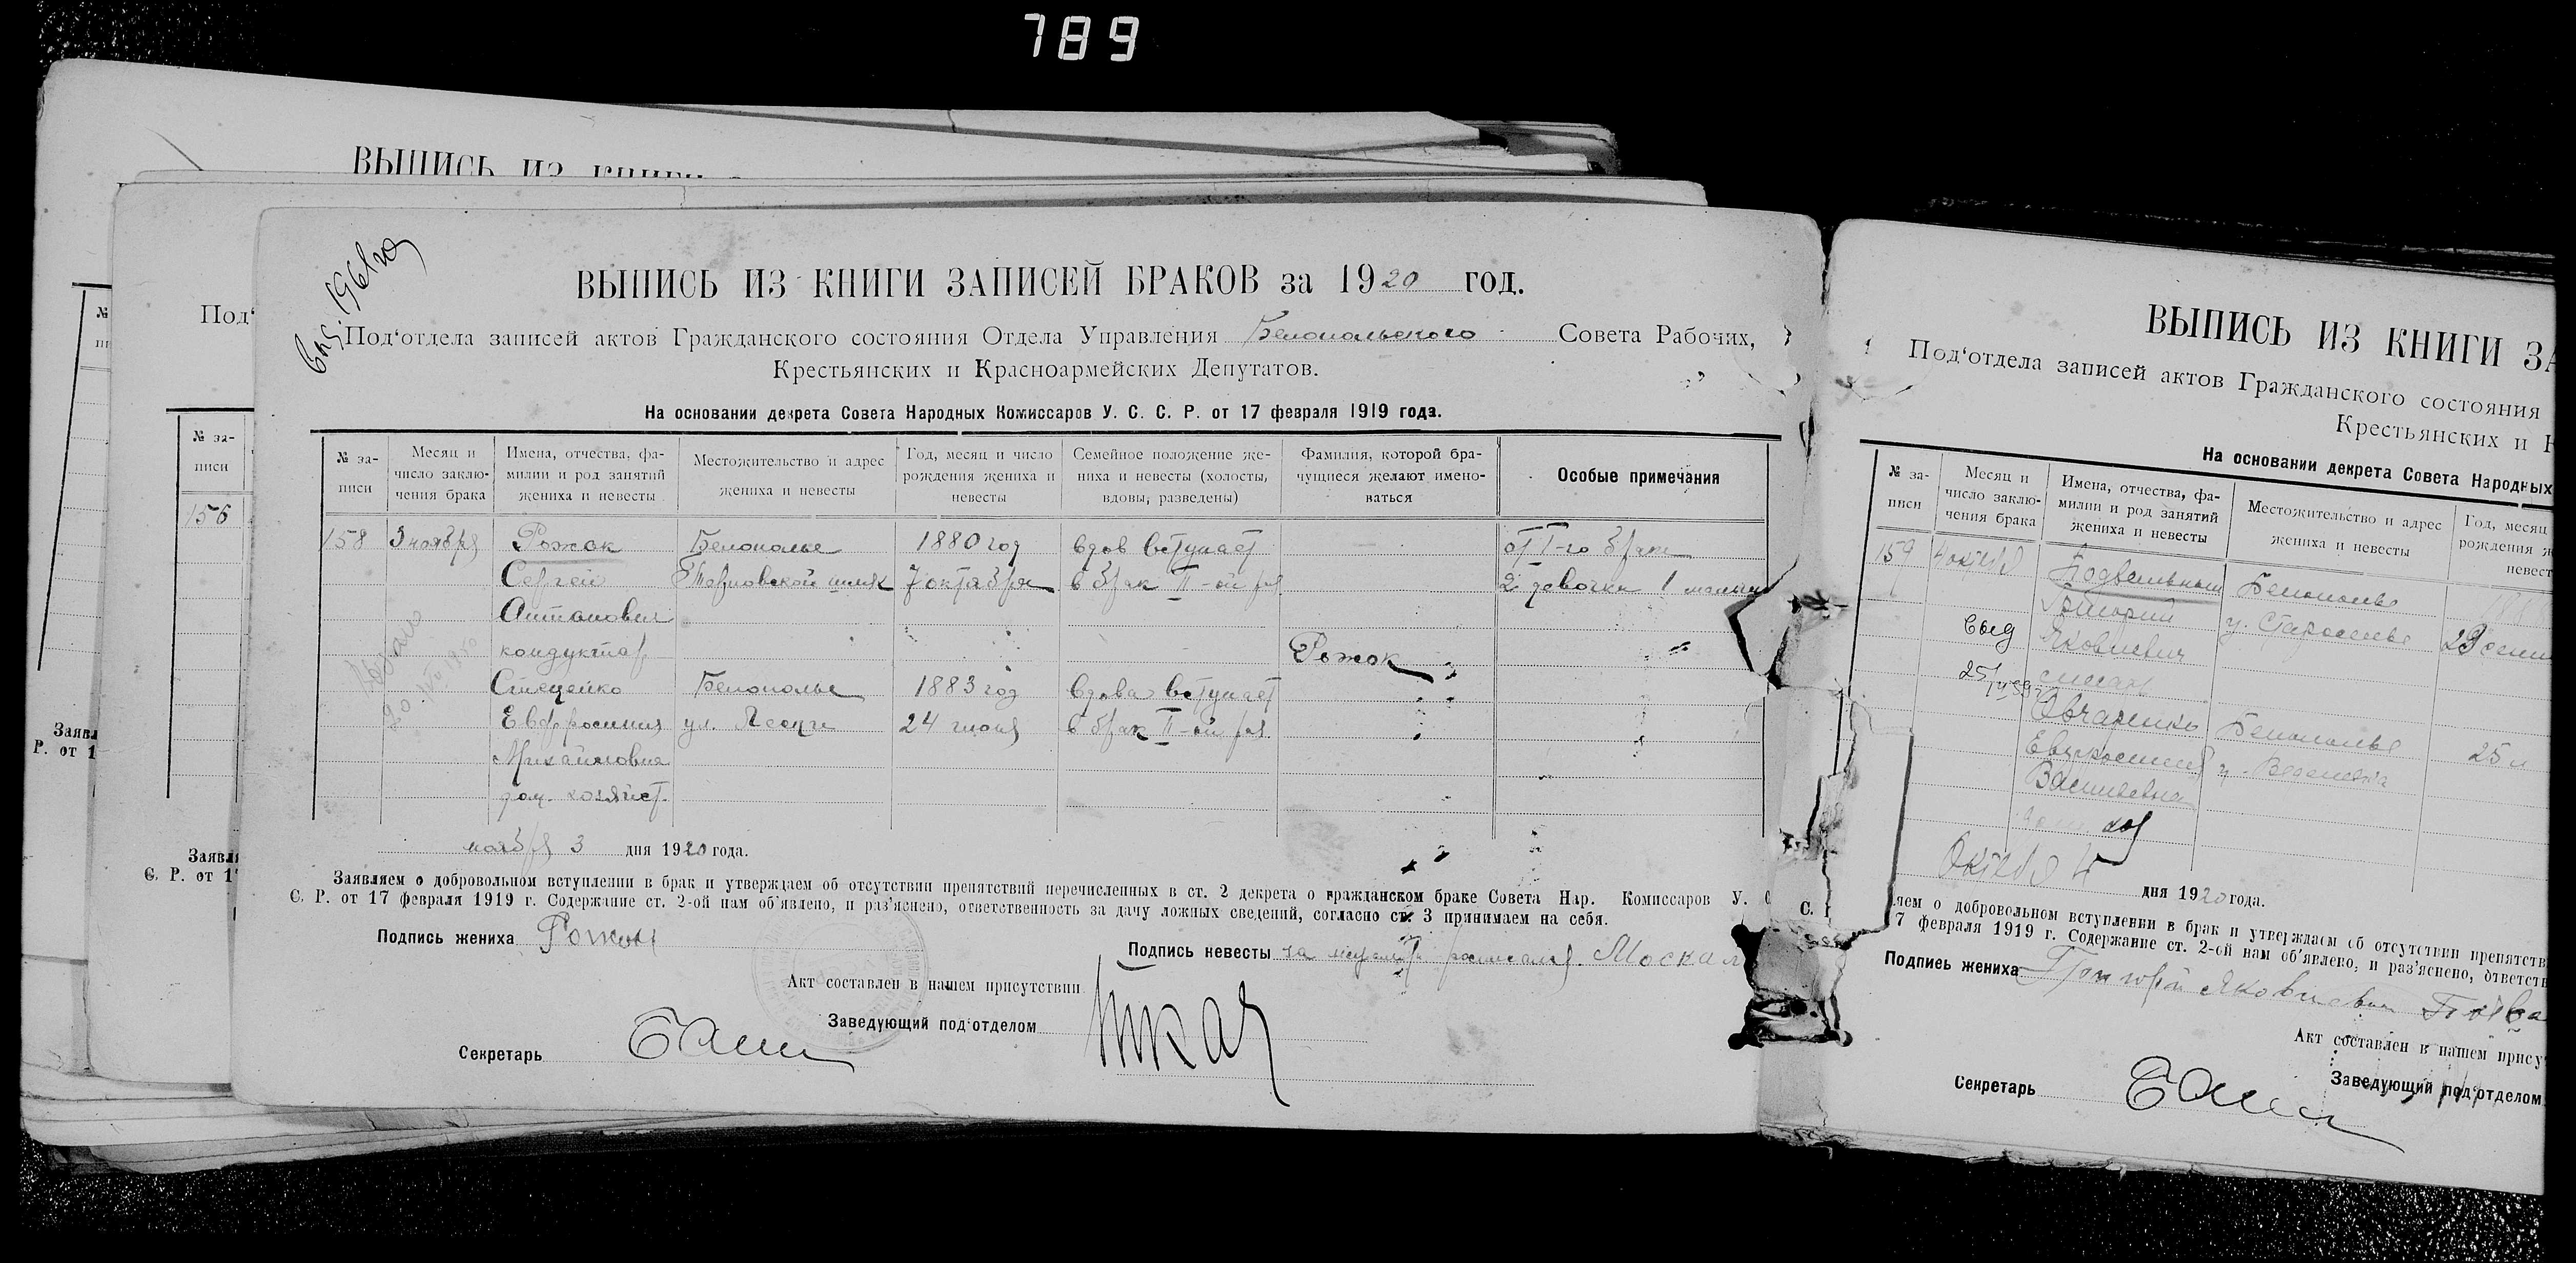 789
ВЫПИСЬ ИЗ КНИГИ
Под‘
№ за-
писи
156
Заявл
Р. от 1
Заявля
С. Р. от 1
Выд. 1961
ВЫПИСЬ ИЗ КНИГИ ЗАПИСЕЙ БРАКОВ за 1920 год.
Под‘отдела записей актов Гражданского состояния Отдела Управления Белопольского Совета Рабочих,
Крестьянских и Красноармейских Депутатов.
На основании декрета Совета Народных Комиссаров У. С. С. Р. от 17 февраля 1919 года.
№ за-писи
Месяц и число заклю-чения брака
Имена, отчества, фа-милии и род занятий жениха и невесты
Местожительство и адрес жениха и невесты
Год, месяц и число рождения жениха и невесты
Семейное положение же-ниха и невесты (холосты, вдовы, разведены)
Фамилия, которой бра-чущиеся желают имено-ваться
Особые примечания
158 3 ноября Рожок Белополье 1880 год вдов вступает от I-го брака
Сергей шлях 7 октября в брак II-ой раз 2 девочки 1 мальч
Антонович
кондуктор Рожок
Стеценко Белополье 1883 год вдова вступает
Евфросиния ул. 24 июня в брак II-ой раз
Михайловна
дом. хозяйст.
ноября 3 дня 1920 года.
Заявляем о добровольном вступлении в брак и утверждаем об отсутствии препятствий перечисленных в ст. 2 декрета о гражданском браке Совета Нар. Комиссаров У. С
С. Р. от 17 февраля 1919 г. Содержание ст. 2-ой нам об‘явлено, и раз‘яснено, ответственность за дачу ложных сведений, согласно ст. 3 принимаем на себя.
Подпись жениха Рожок
Подпись невесты за Москал
Акт составлен в нашем присутствии
Заведующий под‘отделом Ткач
Секретарь
ВЫПИСЬ ИЗ КНИГИ ЗА
Под‘отдела записей актов Гражданского состояния
Крестьянских и К
На основании декрета Совета Народных
№ за-писи
Месяц и число заклю-чения брака
Имена, отчества, фа-милии и род занятий жениха и невесты
Местожительство и адрес жениха и невесты
Год, месяц
рождения ж
невест
159 Белополье
Григорий 29
выд Яковлевич
слесарь
Овчаренко Белополье 25
Евфросиния
Васильевна
Октября 4 дня 1920 года.
ляем о добровольном вступлении в брак и утверждаем об отсутствии препятств
7 февраля 1919 г. Содержание ст. 2-ой нам об‘явлено, и раз‘яснено, ответств
Подпись жениха Григорий Яковлевич
Акт составлен в нашем прису
Заведующий под‘отделом
Секретарь